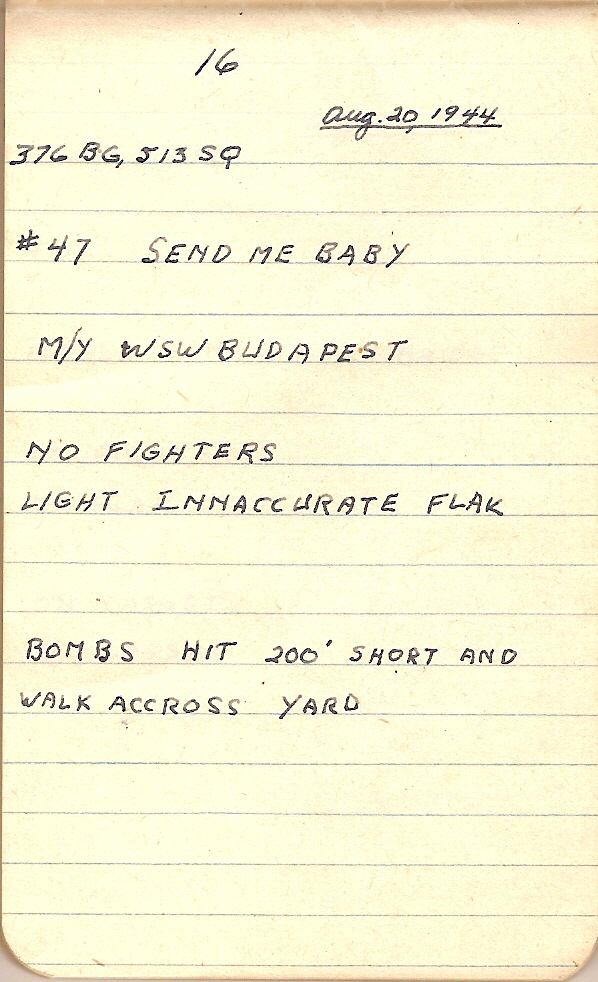 16
Aug. 20, 1944
376 BG, 513 SQ
#47 SEND ME BABY
M/Y WSW BUDAPEST
NO FIGHTERS
LIGHT INNACCURATE FLAK
BOMBS HIT 200' SHORT AND
WALK ACCROSS YARD